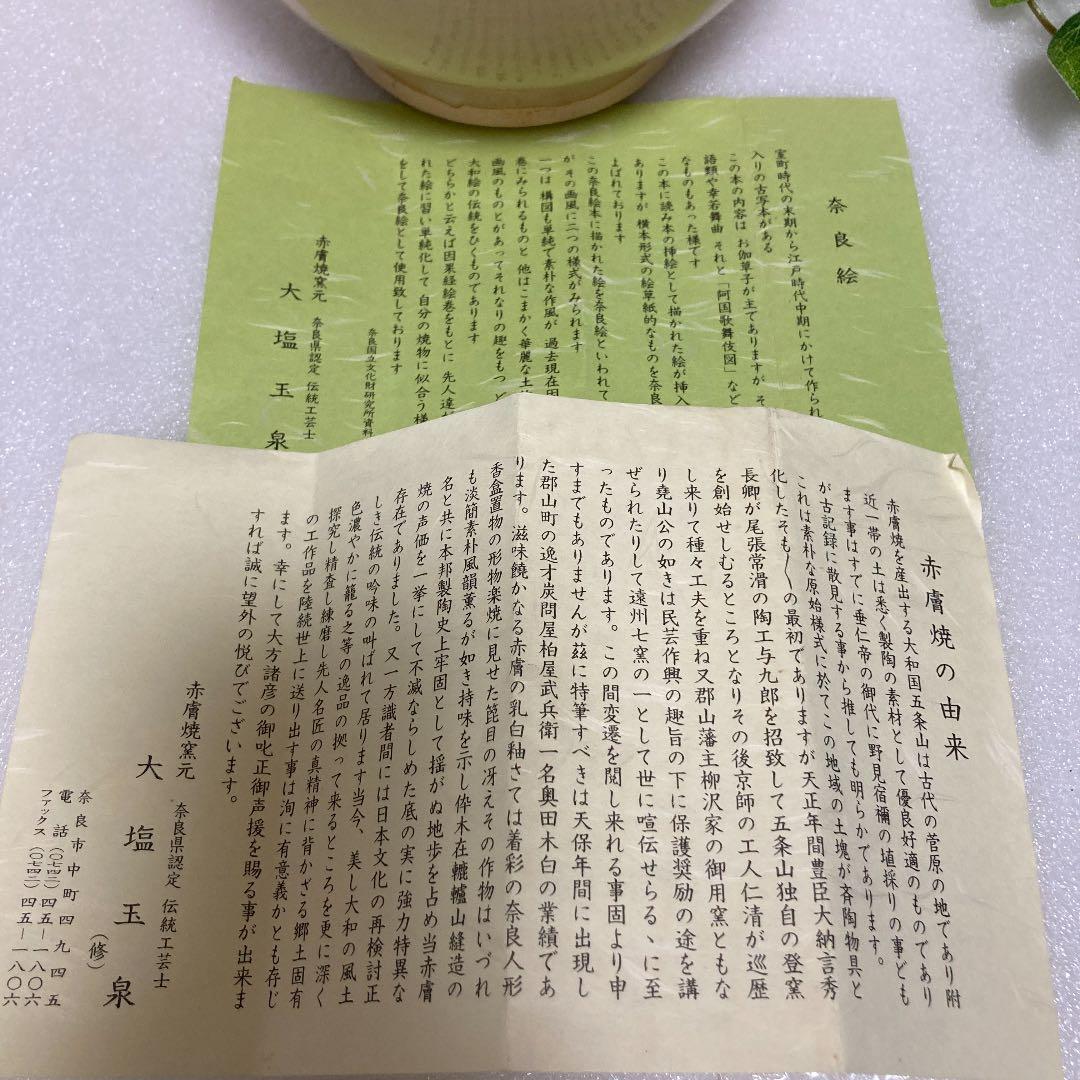 奈良絵
室町時代の末期から江戸時代中期にかけて作られ
入りの古写本がある
この本の内容は お伽草子が主でありますが そ
語類や幸若舞曲 それと「阿国歌舞伎図」など
なものもあった様です
この本に読み本の挿絵として描かれた絵が挿入
ありますが 横本形式の絵草紙的なものを奈良
よばれております
この奈良絵本に描かれた絵を奈良絵といわれて
が その画風に二つの様式がみられます
一つは 構図も単純で素朴な作風が 過去現在因
巻にみられるものと 他はこまかく華麗な土
画風のものとがあってそれなりの趣をもつ ど
大和絵の伝統をひくものであります
どちらかと云えば因果経絵巻をもとに 先人達
れた絵に習い単純化して 自分の焼物に似合う様
をして奈良絵として使用致しております
奈良国立文化財研究所資料
赤膚焼窯元 奈良県認定 伝統工芸士
大塩玉泉
赤膚焼の由来
赤膚焼を産出する大和国五条山は古代の菅原の地であり附
近一帯の土は悉く製陶の素材として優良好適のものであり
ます事はすでに垂仁帝の御代に野見宿禰の埴採りの事ども
が古記録に散見する事から推しても明らかであります。
これは素朴な原始様式に於てこの地域の土塊が斉陶物具と
化したそも〳〵の最初でありますが天正年間豊臣大納言秀
長卿が尾張常滑の陶工与九郎を招致して五条山独自の登窯
を創始せしむるところとなりその後京師の工人仁清が巡歴
し来りて種々工夫を重ね又郡山藩主柳沢家の御用窯ともな
り堯山公の如きは民芸作興の趣旨の下に保護奨励の途を講
ぜられたりして遠州七窯の一として世に喧伝せらるゝに至
ったものであります。この間変遷を閲し来れる事固より申
すまでもありませんが茲に特筆すべきは天保年間に出現し
た郡山町の逸才炭問屋柏屋武兵衛一名奥田木白の業績であ
ります。滋味饒かなる赤膚の乳白釉さては着彩の奈良人形
香盒置物の形物楽焼に見せた箆目の冴えその作物はいづれ
も淡簡素朴風韻薫るが如き持味を示し伜木在轆轤山縫造の
名と共に本邦製陶史上牢固として揺がぬ地歩を占め当赤膚
焼の声価を一挙にして不滅ならしめた底の実に強力特異な
存在でありました。又一方識者間には日本文化の再検討正
しき伝統の吟味の叫ばれて居ります当今、美し大和の風土
色濃やかに籠る之等の逸品の拠って来るところを更に深く
探究し精査し練磨し先人名匠の真精神に背かざる郷土固有
の工作品を陸続世上に送り出す事は洵に有意義かとも存じ
ます。幸にして大方諸彦の御叱正御声援を賜る事が出来ま
すれば誠に望外の悦びでございます。
赤膚焼窯元 奈良県認定 伝統工芸士
大塩玉泉
(修)
奈良市中町四九四五
電話(〇七四二)四五―一八〇六
ファックス(〇七四二)四五―一八〇六